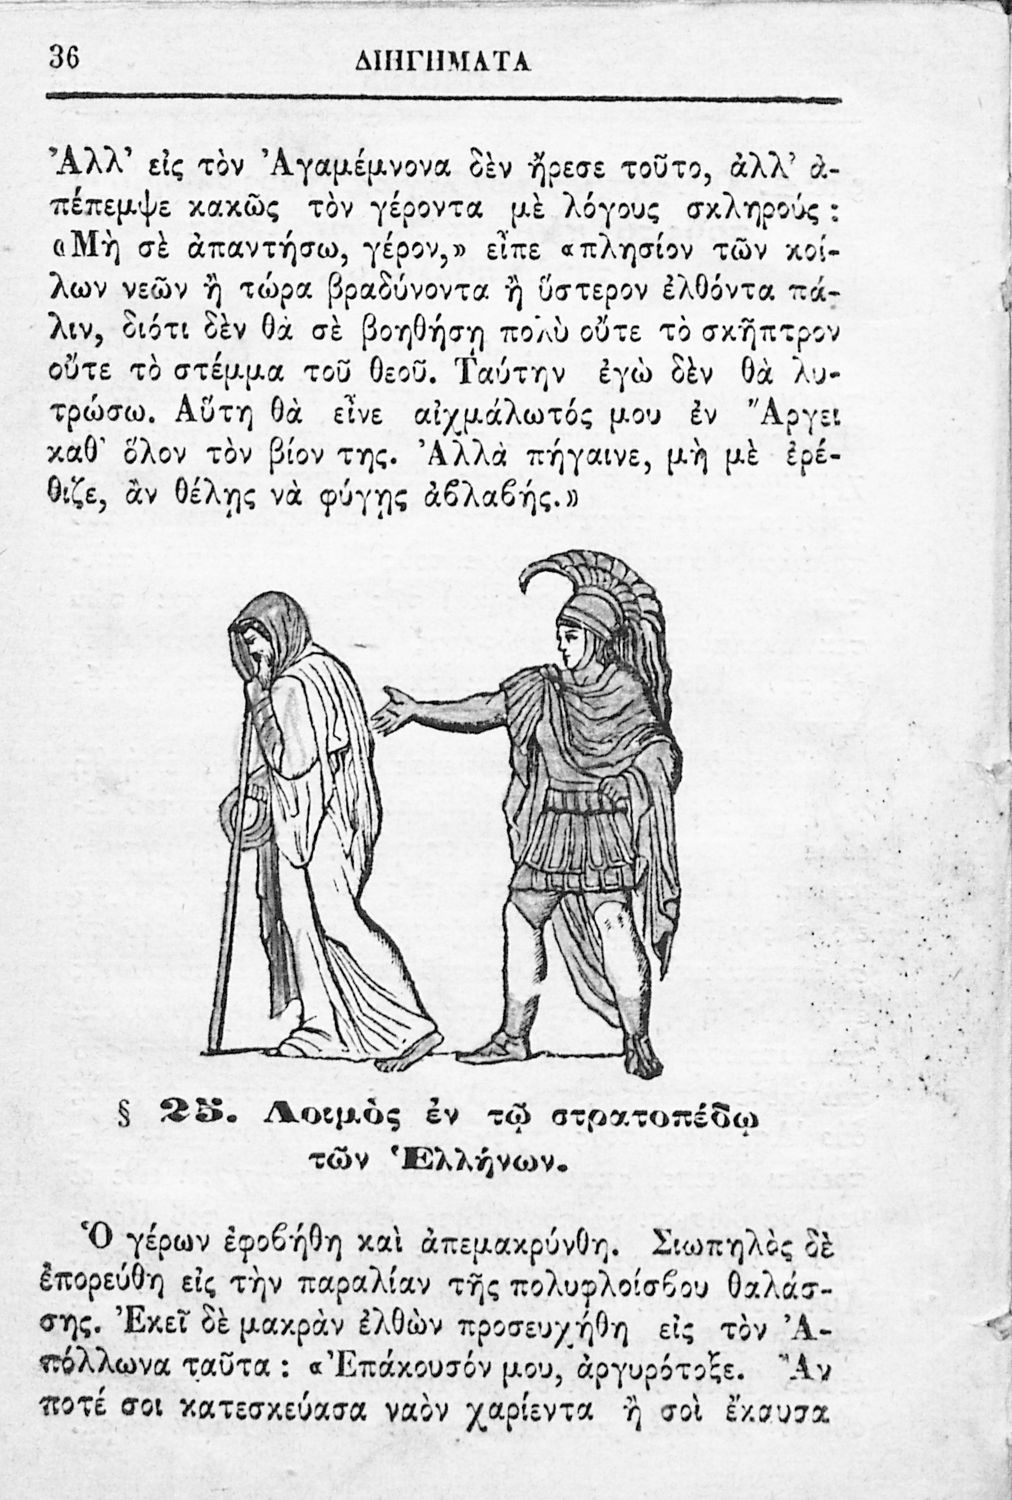 36 ΔΙΗΓΗΜΑΤΑ
Ἀλλ’ εἰς τὸν Ἀγαμέμνονα δὲν ἤρεσε τοῦτο, ἀλλ’ ἀ-
πέπεμψε κακῶς τὸν γέροντα μὲ λόγους σκληρούς :
«Μὴ σὲ ἀπαντήσω, γέρον,» εἶπε «πλησίον τῶν κοί-
λων νεῶν ἢ τώρα βραδύνοντα ἢ ὕστερον ἐλθόντα πά-
λιν, διότι δὲν θὰ σὲ βοηθήσῃ πολὺ οὔτε τὸ σκῆπτρον
οὔτε τὸ στέμμα τοῦ θεοῦ. Ταύτην ἐγὼ δὲν θὰ λυ-
τρώσω. Αὕτη θὰ εἶνε αἰχμάλωτός μου ἐν Ἄργει
καθ’ ὅλον τὸν βίον της. Ἀλλὰ πήγαινε, μὴ μὲ ἐρέ-
θιζε, ἂν θέλῃς νὰ φύγῃς ἀϐλαϐής.»
§ 25. Λοιμὸς ἐν τῷ στρατοπέδῳ
τῶν Ἑλλήνων.
Ὁ γέρων ἐφοϐήθη καὶ ἀπεμακρύνθη. Σιωπηλὸς δὲ
ἐπορεύθη εἰς τὴν παραλίαν τῆς πολυφλοίσϐου θαλάσ-
σης. Ἐκεῖ δὲ μακρὰν ἐλθὼν προσευχήθη εἰς τὸν Ἀ-
πόλλωνα ταῦτα : «Ἐπάκουσόν μου, ἀργυρότοξε. Ἂν
ποτέ σοι κατεσκεύασα ναὸν χαρίεντα ἢ σοὶ ἔκαυσα